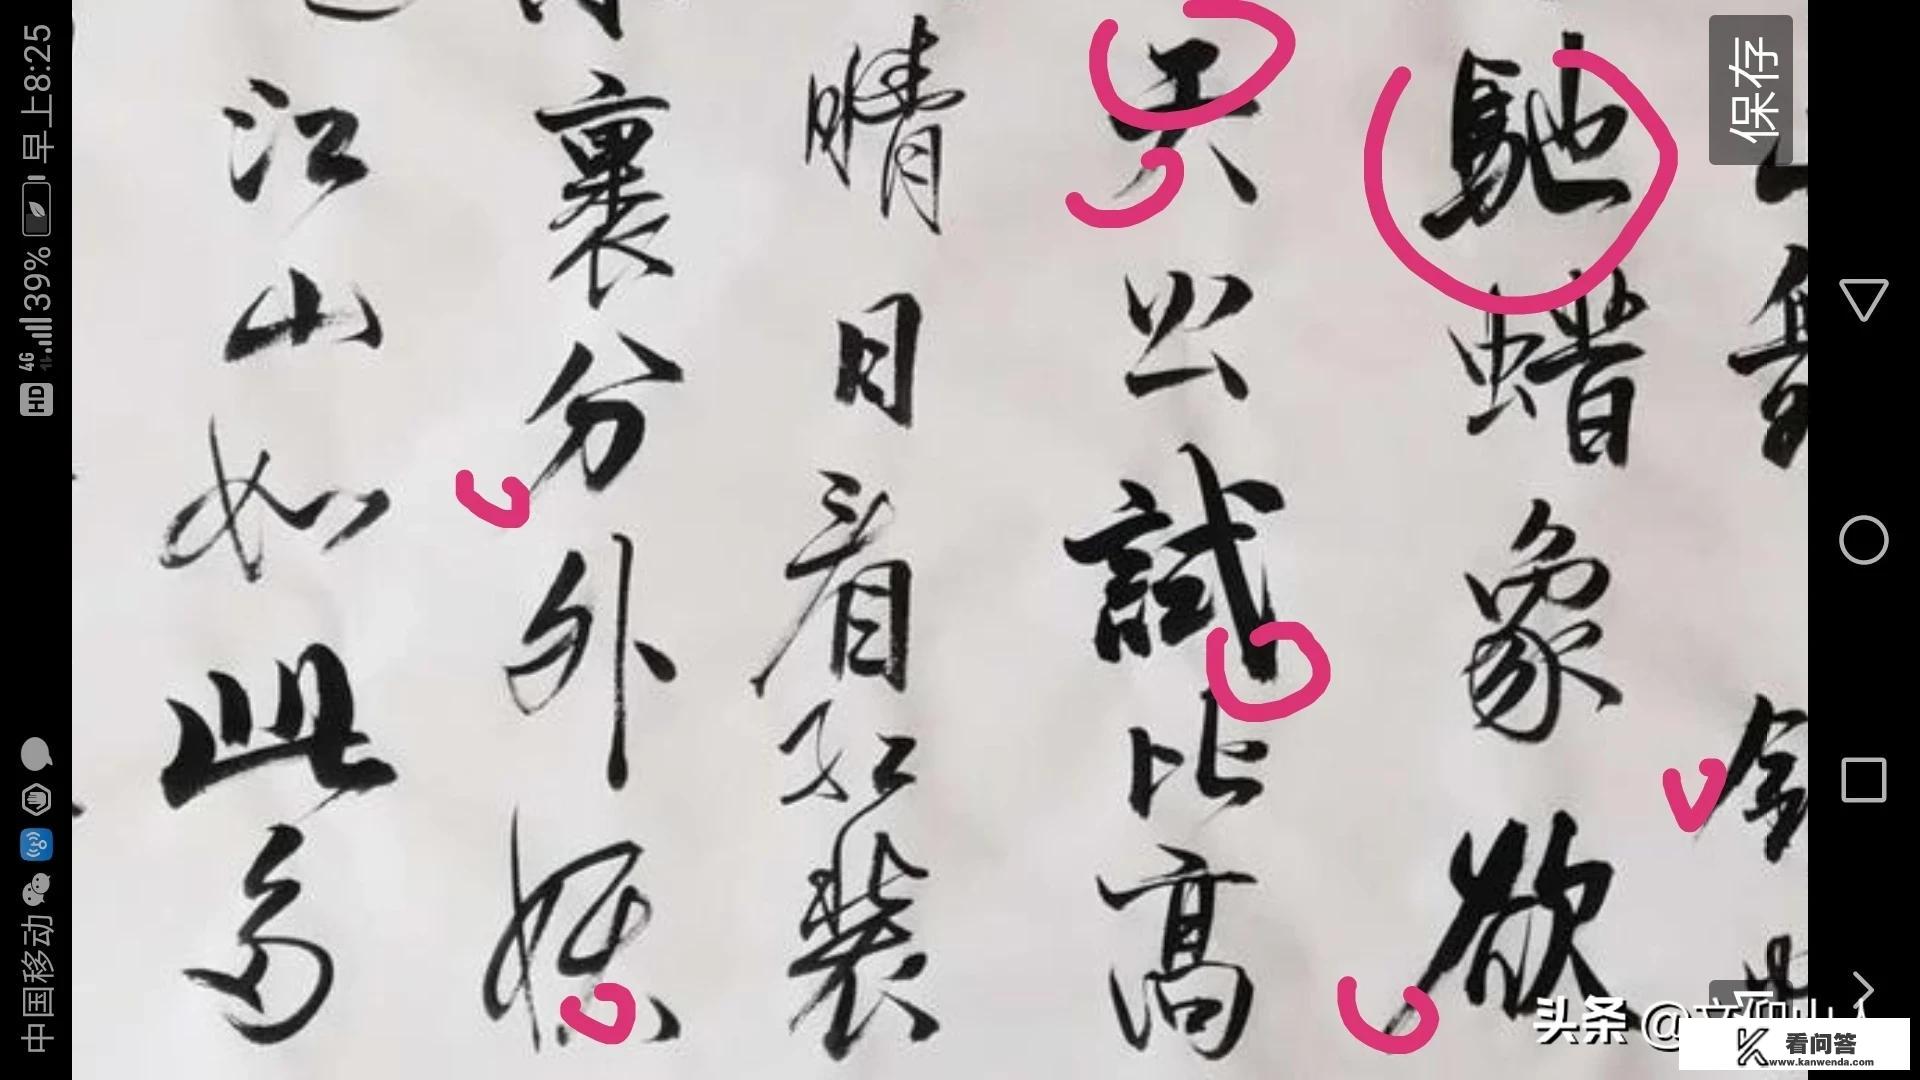 中国移动
HD 4G 39% 早上8:25
保存
舞
馳蜡象欲
天公試比高
晴日看红装
裹分外妖
江山如此多
头条 @
K 看问答
www.kanwenda.com